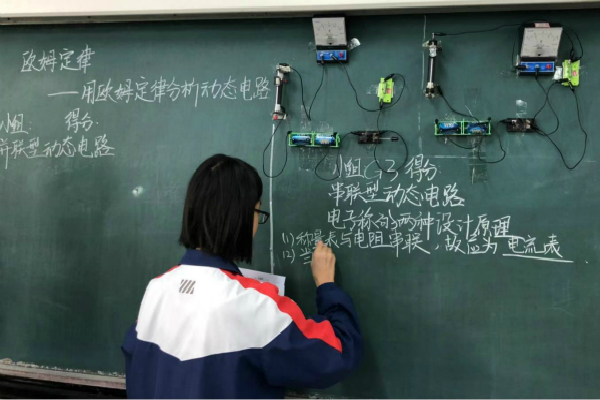 欧姆定律
——用欧姆定律分析动态电路
小组: 得分:
并联型动态电路
小组G3得分
串联型动态电路
电子称的两种设计原理
(1)称量表与电阻串联,故应为 电流表
(2)当